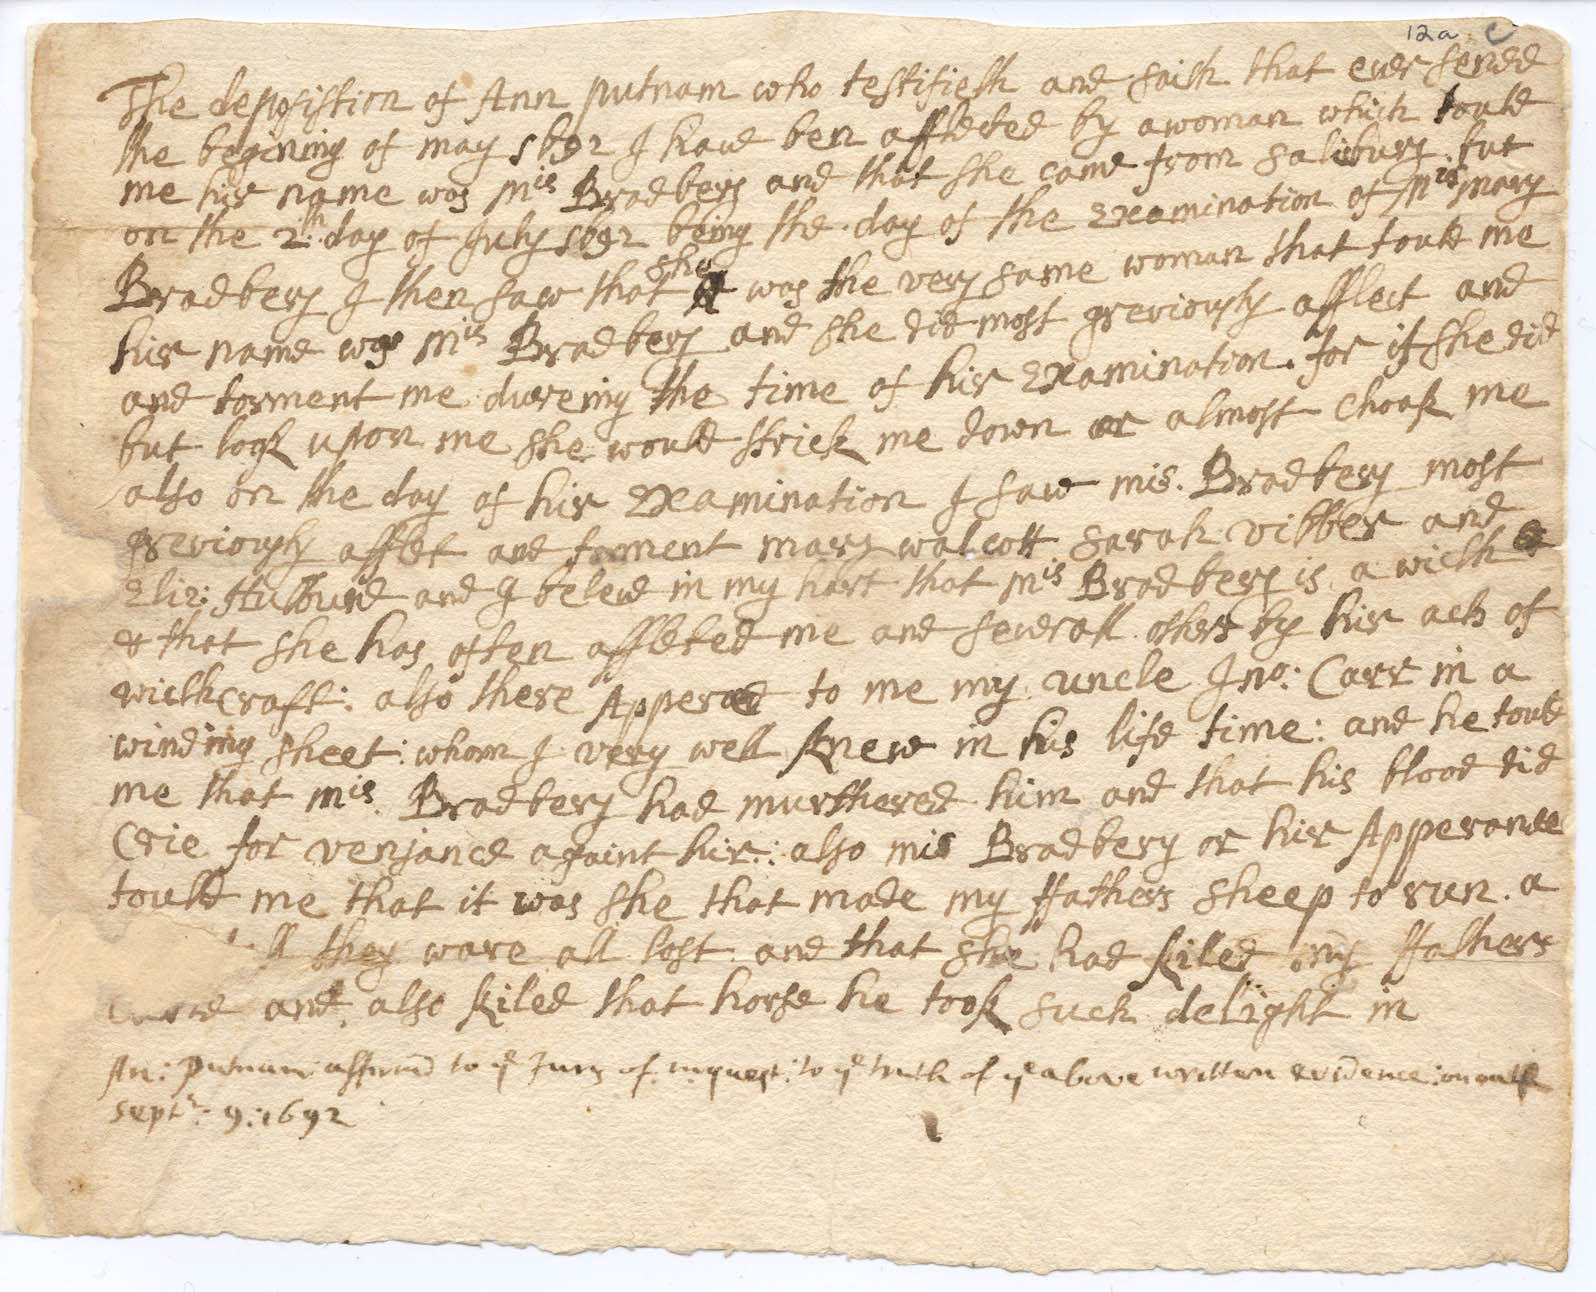 12a
The deposistion of Ann putnam who testifieth and saith that euer sence
the begining of may 1692 I haue ben afflected by a woman which tould
me hir name was Mis Bradbery and that she came from Salisbury but
on the 2th day of July 1692 being the day of the Examination of Mis mary
Bradbery I then saw that she was the very same woman that tould me
hir name was Mis Bradbery and she did most greviously afflect and
and torment me dureing the time of hir Examination. for if she did
but look upon me she would strick me down or almost choak me
also on the day of hir Examination I saw mis. Bradbery most
greviously afflet and torment mary walcott sarah vibber and
Eliz: Hulburd and I beleve in my hart that Mis Bradbery is a wicth
& that she has often affleted me and severall others by hir acts of
wicthcraft: also there Appered to me my uncle Jno: Carr in a
winding sheet: whom I very well knew in his life time: and he tould
me that mis Bradbery had murthered him and that his blood did
Crie for venjance againt hir: also mis Bradbery or hir Apperance
tould me that it was she that made my ffathers sheep to run a
they ware all lost and that she had kiled my ffathers
and also kiled that horse he took such delight in
An: putnam affirmd to ye Jury of inquest: to ye truth of ye above written evidence: on oath
Septr: 9: 1692